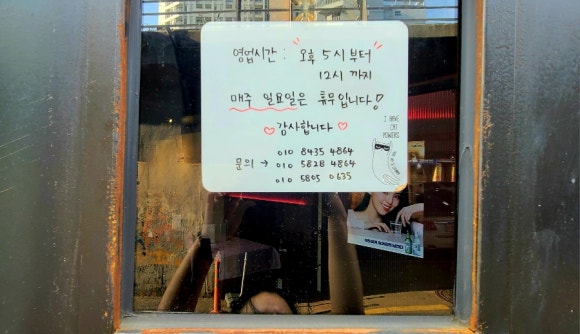 영업시간 : "오후 5시부터"
12시 까지
매주 일요일은 휴무입니다!
감사합니다
010 8435 4864
문의 → 010 5828 4864
010 5805 0635
I HAVE
CAT
POWERS